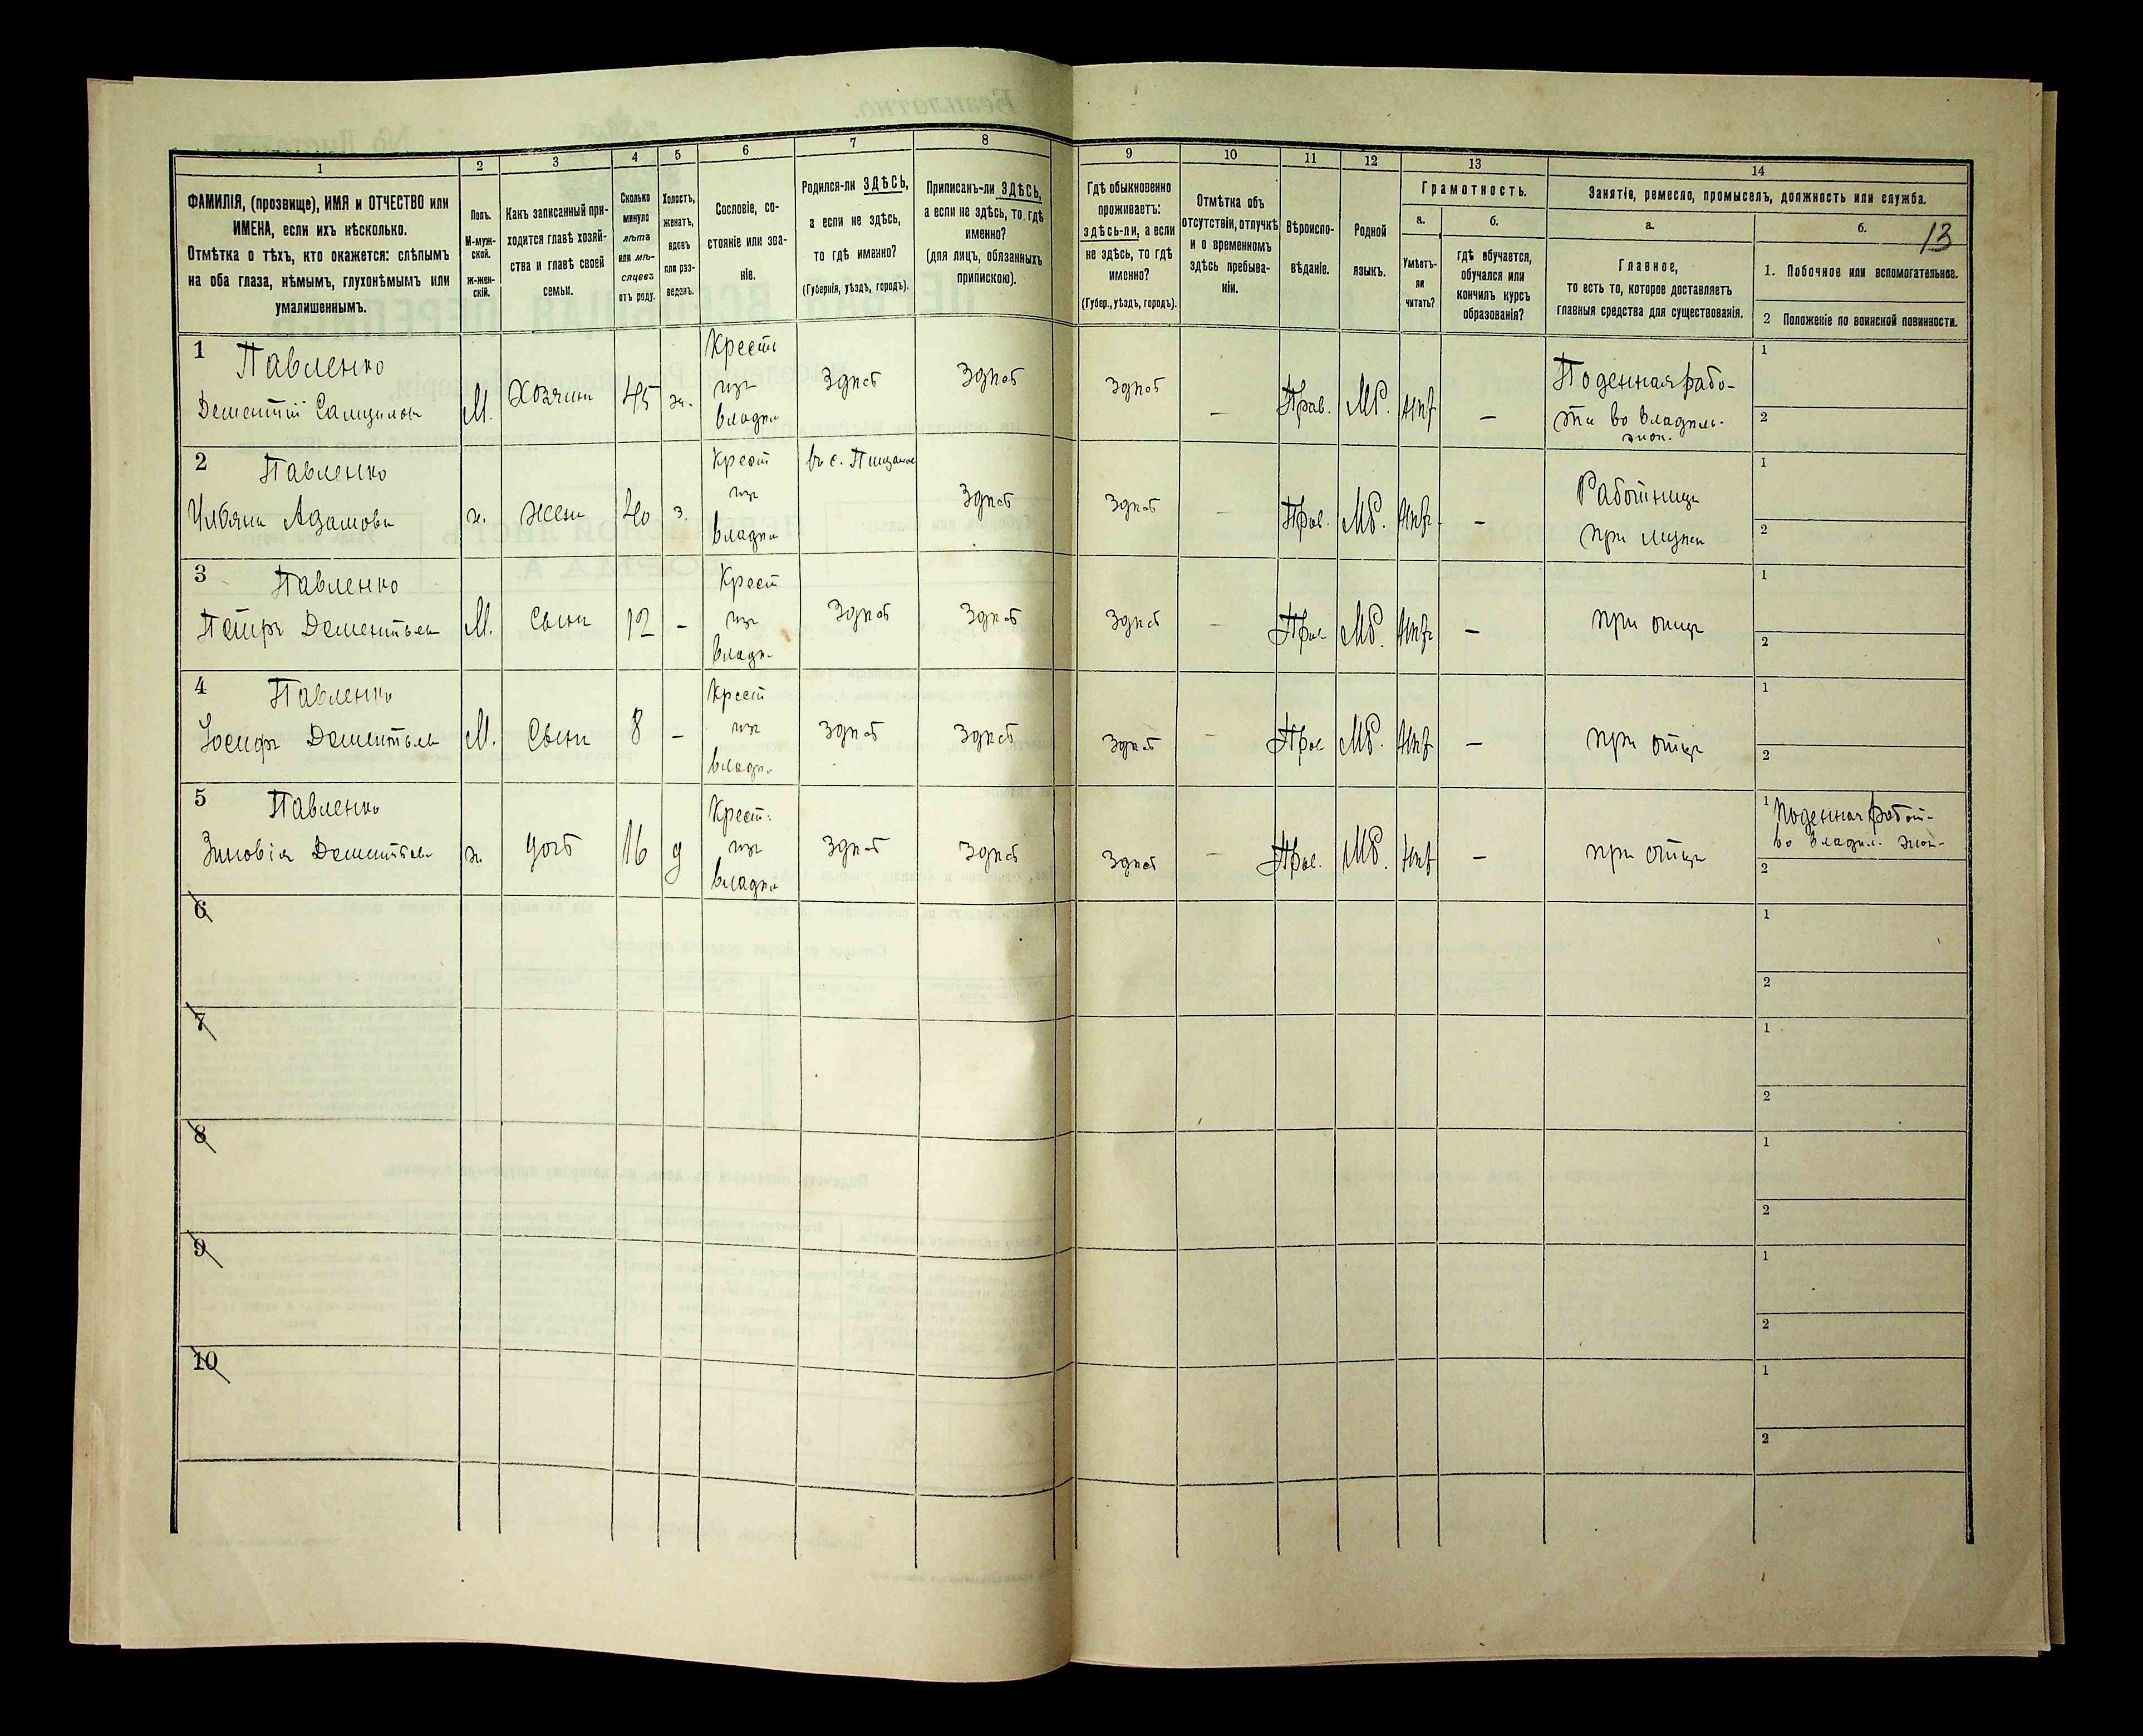 1
2
3
4
5
6
7
8
9
10
11
12
13
14
ФАМИЛІЯ, (прозвище), ИМЯ и ОТЧЕСТВО или
ИМЕНА, если ихъ нѣсколько.
Отмѣтка о тѣхъ, кто окажется: слѣпымъ
на оба глаза, нѣмымъ, глухонѣмымъ или
умалишеннымъ.
Полъ.
М-муж-
ской.
ж-жен-
скій.
Какъ записанный при-
ходится главѣ хозяй-
ства и главѣ своей
семьи.
Сколько
минуло
лѣтъ
или мѣ-
сяцевъ
отъ роду.
Холостъ,
женатъ,
вдовъ
или раз-
веденъ.
Сословіе, со-
стояніе или зва-
ніе.
Родился-ли ЗДѢСЬ,
а если не здѣсь,
то гдѣ именно?
(Губернія, уѣздъ, городъ).
Приписанъ-ли ЗДѢСЬ,
а если не здѣсь, то гдѣ
именно?
(для лицъ, обязанныхъ
припискою).
Гдѣ обыкновенно
проживаетъ:
здѣсь-ли, а если
не здѣсь, то гдѣ
именно?
(Губер., уѣздъ, городъ).
Отмѣтка объ
отсутствіи, отлучкѣ
и о временномъ
здѣсь пребыва-
ніи.
Вѣроиспо-
вѣданіе.
Родной
языкъ.
Грамотность.
а.
Умѣетъ-
ли
читать?
б.
гдѣ обучается,
обучался или
кончилъ курсъ
образованія?
Занятіе, ремесло, промыселъ, должность или служба.
а.
Главное,
то есть то, которое доставляетъ
главныя средства для существованія.
б.
13
1. Побочное или вспомогательное.
2 Положеніе по воинской повинности.
1 Павленко
Дементій
М. Хозяинъ 45 ж.
Крестн
изъ
владѣл
здѣсь здѣсь здѣсь – Прав. Мр. нѣт –
Поденная рабо-
та во владѣль-
экон.
1
2
2 Павленко
Ульяна Адамова
ж. жена 40 з.
Крест
изъ
владѣл
въ с. здѣсь здѣсь – Прав. Мр. нѣт –
Работница
при мужѣ
1
2
3 Павленко
Петръ Дементьевъ
М. Сынъ 12 –
Крест
изъ
владѣ-
здѣсь здѣсь здѣсь – Прав Мр. нѣт –
при отцѣ
1
2
4 Павленко
Іосифъ Дементьевъ
М. Сынъ 8 –
Крест
изъ
владѣ-
здѣсь здѣсь здѣсь – Прав Мр. нѣт –
при отцѣ
1
2
5 Павленко
Зиновія Дементьева
ж. дочь 16 д
Крест.
изъ
владѣл
здѣсь здѣсь здѣсь – Прав. Мр. нѣт –
при отцѣ
1 Поденная работ-
во владѣл. экон-
2
6
1
2
7
1
2
8
1
2
9
1
2
10
1
2